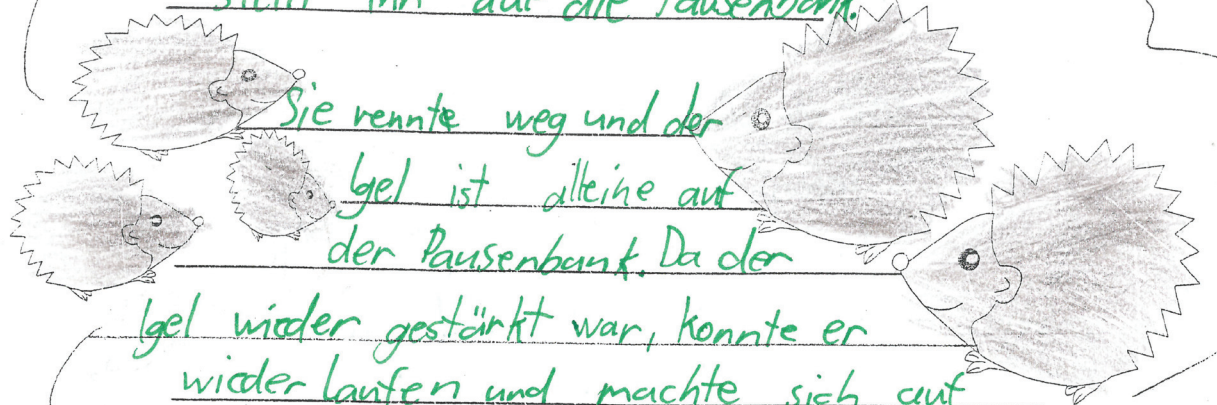 stellt ihn auf die Pausenbank.
Sie rennte weg und der
Igel ist alleine auf
der Pausenbank. Da der
Igel wieder gestärkt war, konnte er
wieder laufen und machte sich auf